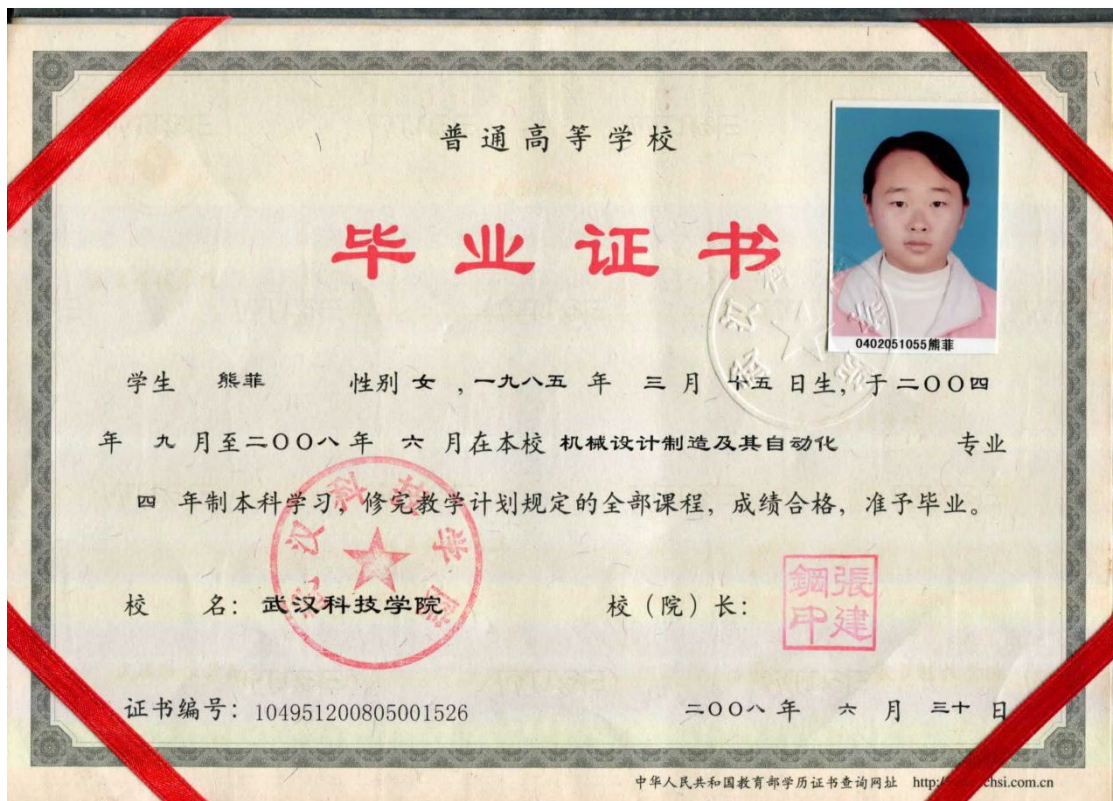 普通高等学校
毕业证书
0402051055熊菲
学生 熊菲 性别 女 ,一九八五 年 三 月 十五 日生, 于二〇〇四
年 九 月至二〇〇八年 六 月在本校 机械设计制造及其自动化 专业
四 年制本科学习, 修完教学计划规定的全部课程, 成绩合格, 准予毕业。
武汉科技学院
校 名: 武汉科技学院 校(院)长:
張建鋼印
证书编号: 104951200805001526 二〇〇八 年 六 月 三十 日
中华人民共和国教育部学历证书查询网址 http:
chsi.com.cn